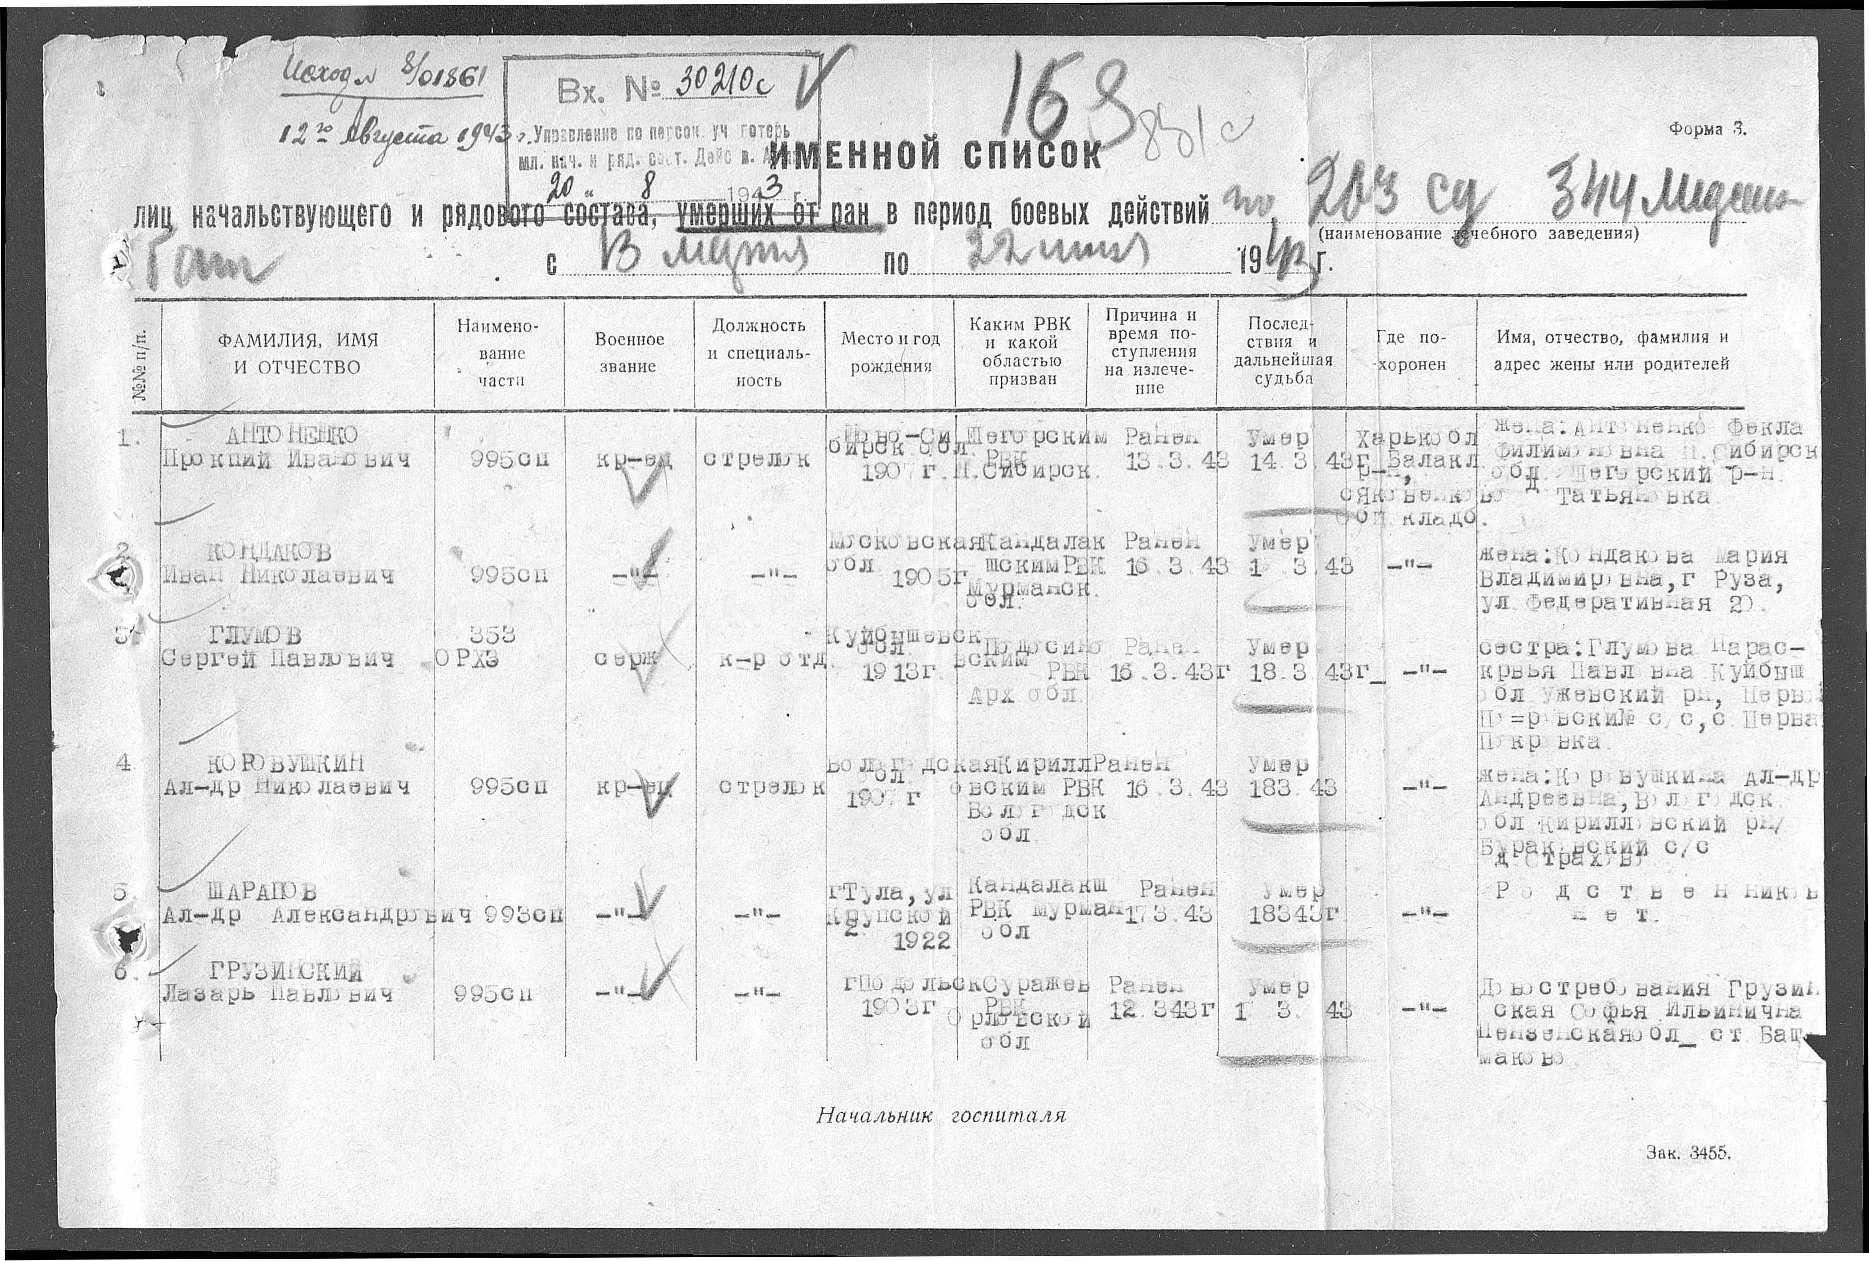 Исход № 8/01861
12го Августа 1943 г.
Вх. № 30210с
Управление по персон. уч. потерь
мл. нач. и ряд. сост. Дейс
20 " 8 1943 г.
169
851с
Форма 3.
ИМЕННОЙ СПИСОК
лиц начальствующего и рядового состава, умерших от ран в период боевых действий по 203 сд 344
(наименование лечебного заведения)
с 13 марта по 22 1943 г.
№№ п/п.
ФАМИЛИЯ, ИМЯ И ОТЧЕСТВО
Наимено-
вание
части
Военное
звание
Должность
и специаль-
ность
Место и год
рождения
Каким РВК
и какой
областью
призван
Причина и
время по-
ступления
на излече-
ние
Послед-
ствия и
дальнейшая
судьба
Где по-
хоронен
Имя, отчество, фамилия и
адрес жены или родителей
1. АНТОНЕНКО
Прокпий Иванович
995сп
кр-ец
стрелок
Ново-Си
бирск.обл.
1907г.
Шегорским
РВК
Н.Сибирск.
Ранен
13.3.43
Умер
14.3.43г
Харькобл
г.Балакл
р-н,
сЯковенково
общ кладб.
жена:Антоненко Фекла
Филимоновна Н.Сибирск
обл. Шегорский р-н.
д Татьяновка.
2. КОНДАКОВ
Иван Николаевич
995сп
-"-
-"-
Московская
обл
1905г
Кандалак
шскимРВК
Мурманск.
обл.
Ранен
16.3.43
Умер
1 3.43
-"-
жена:Кондакова Мария
Владимировна,г Руза,
ул.Федеративная 20.
3. ГЛУМОВ
Сергей Павлович
353
ОРХЗ
серж
к-р отд
Куйбышевск
обл.
1913г.
Подосино
вским
РВК
Арх обл.
Ранен
16.3.43г
Умер
18.3 43г_
-"-
сестра:Глумова Парас-
крвья Павловна Куйбыш
обл Ужевский рн, Первы
По=ровский с/с,с Перва
Покровка.
4 КОРОВУШКИН
Ал-др Николаевич
995сп
кр-ец
стрелок
Вологодская
обл.
1907г
Кирилл
овским РВК
Вологодск
обл.
Ранен
16.3.43
Умер
183.43
-"-
жена:Коровушкина Ал-др
Андреевна,Вологодск.
обл Кирилловский рн/
Бураковский с/с
д Страхово
5 ШАРАПОВ
Ал-др Александрович
993сп
-"-
-"-
гТула,ул
Крупской
2
1922
Кандалакш
РВК Мурман
обл
Ранен
173.43
Умер
18343г.
-"-
Родственников
нет.
6. ГРУЗИНСКИЙ
Лазарь Павлович
995сп
-"-
-"-
гПодольск
1903г
Суражев
РВК
Орловской
обл
Ранен
12.343г
Умер
1 3. 43
-"-
Довостребования Грузин
ская Софья Ильинична
Пензенскаяобл_ ст.Баш
маково
Начальник госпиталя
Зак. 3455.